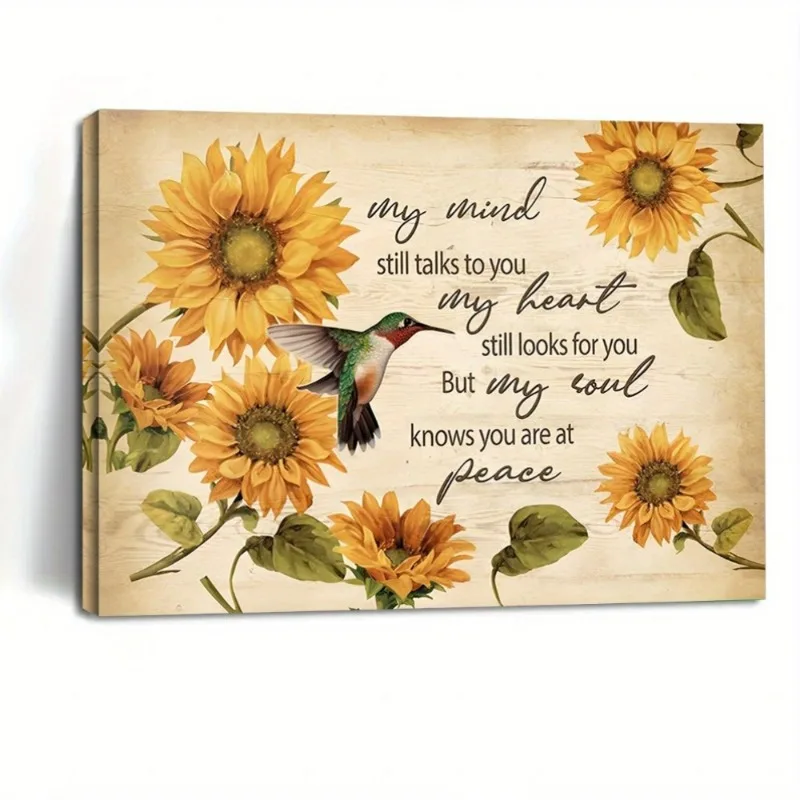 my mind
still talks to you
my heart
still looks for you
But my soul
knows you are at
peace